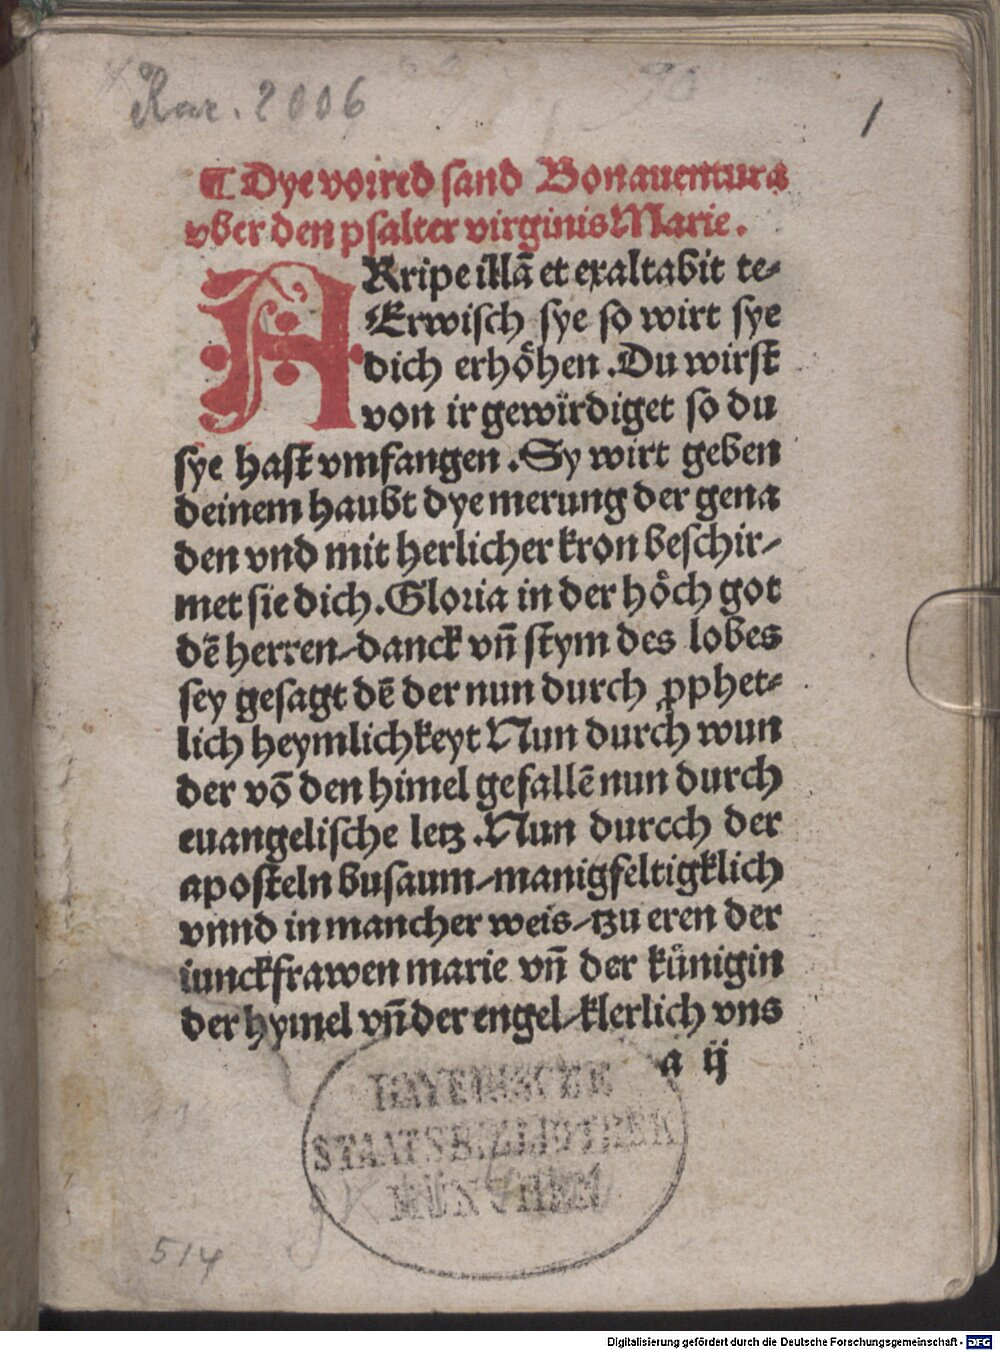 Rar. 2006
1
¶ Dye vorred sand Bonauentura
vber den psalter virginis Marie.
ARripe illã et exaltabit te⸗
Erwisch sye so wirt sye
dich erhöhen. Du wirst
von ir gewirdiget so du
sye hast vmfangen. Sy wirt geben
deinem haubt dye merung der gena
den vnd mit herlicher kron beschir/
met sie dich. Gloria in der höch got
dē herren/danck vn̄ stym des lobes
sey gesagt dē der nun durch ꝓphet⸗
lich heymlichkeyt Nun durch wun
der vō den himel gefallē nun durch
euangelische letz. Nun durcch der
aposteln busaum/manigfeltigklich
vnnd in mancher weis/tzu eren der
iunckfrawen marie vn̄ der künigin
der hymel vn̄ der engel/klerlich vns
a ij
BAYERISCHE
STAATSBIBLIOTHEK
MÜNCHEN
514
Digitalisierung gefördert durch die Deutsche Forschungsgemeinschaft - DFG